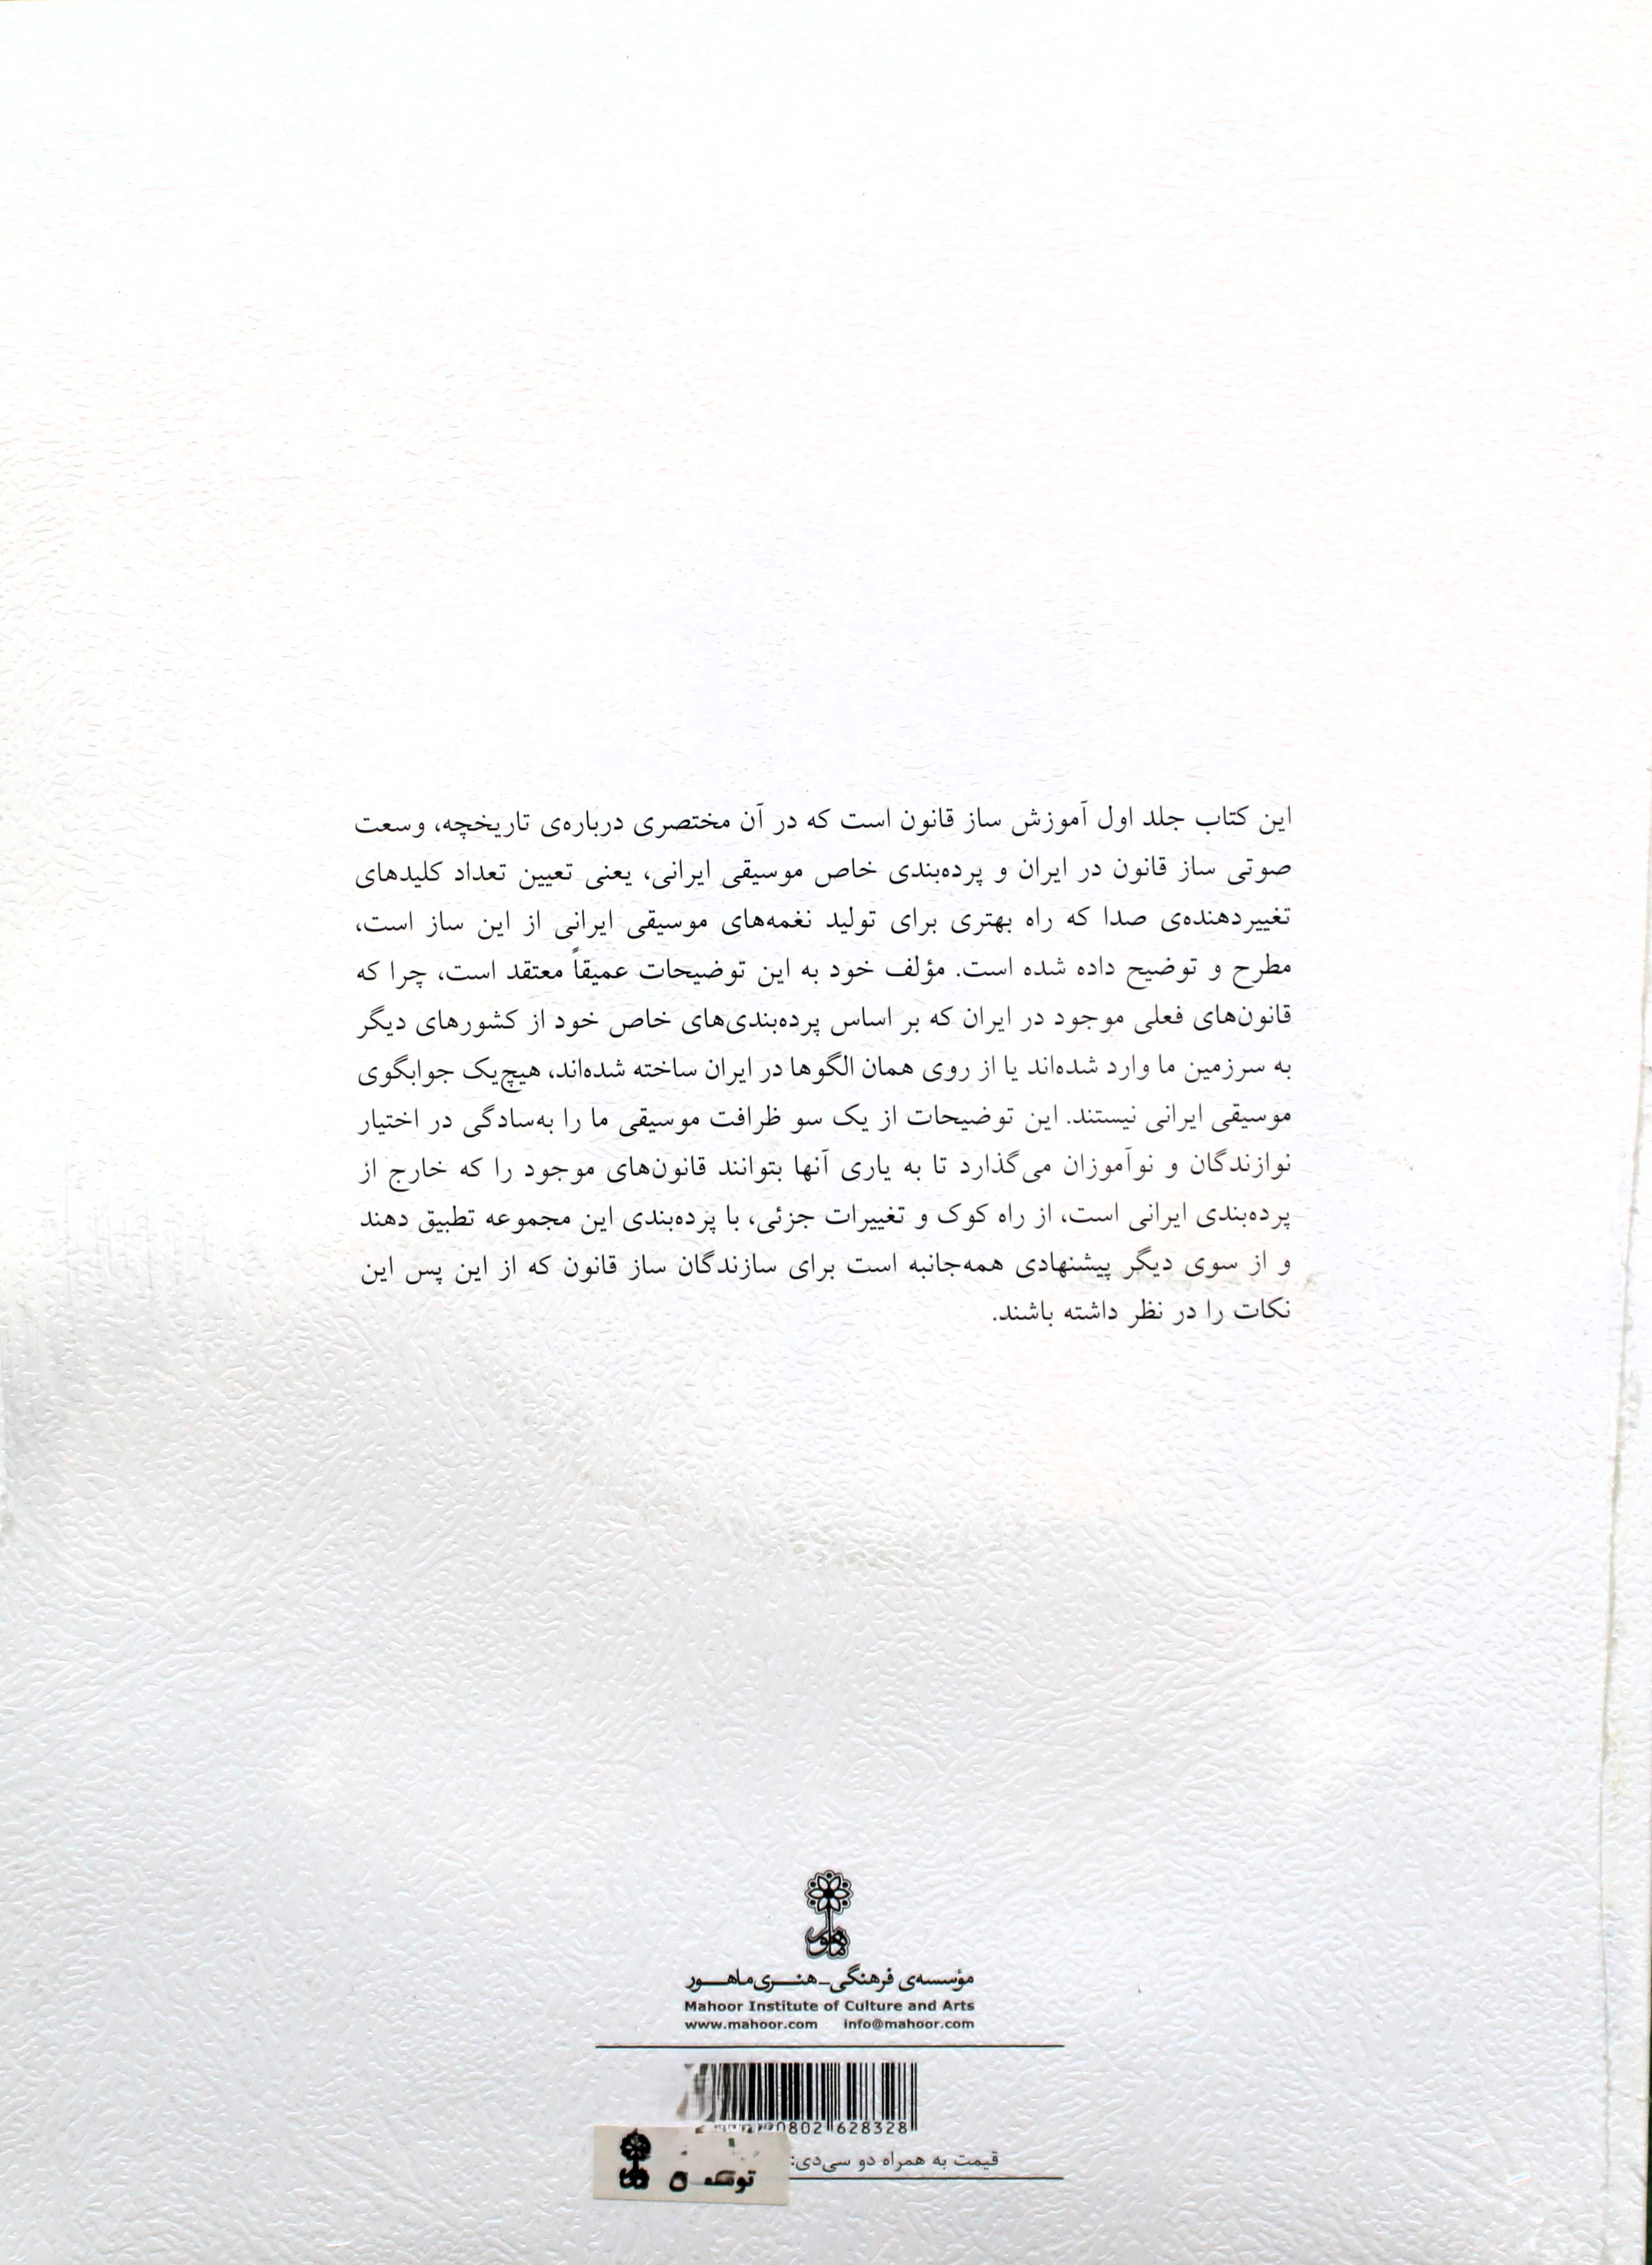 این کتاب جلد اول آموزش ساز قانون است که در آن مختصری درباره‌ی تاریخچه، وسعت
صوتی ساز قانون در ایران و پرده‌بندی خاص موسیقی ایرانی، یعنی تعیین تعداد کلیدهای
تغییردهنده‌ی صدا که راه بهتری برای تولید نغمه‌های موسیقی ایرانی از این ساز است،
مطرح و توضیح داده شده است. مؤلف خود به این توضیحات عمیقاً معتقد است، چرا که
قانون‌های فعلی موجود در ایران که بر اساس پرده‌بندی‌های خاص خود از کشورهای دیگر
به سرزمین ما وارد شده‌اند یا از روی همان الگوها در ایران ساخته شده‌اند، هیچ‌یک جوابگوی
موسیقی ایرانی نیستند. این توضیحات از یک سو ظرافت موسیقی ما را به‌سادگی در اختیار
نوازندگان و نوآموزان می‌گذارد تا به یاری آنها بتوانند قانون‌های موجود را که خارج از
پرده‌بندی ایرانی است، از راه کوک و تغییرات جزئی، با پرده‌بندی این مجموعه تطبیق دهند
و از سوی دیگر پیشنهادی همه‌جانبه است برای سازندگان ساز قانون که از این پس این
نکات را در نظر داشته باشند.
ماهور
مؤسسه‌ی فرهنگی_هنـــری‌ماهـــور
Mahoor Institute of Culture and Arts
www.mahoor.com info@mahoor.com
0802 628328
قیمت به همراه دو سی‌دی: